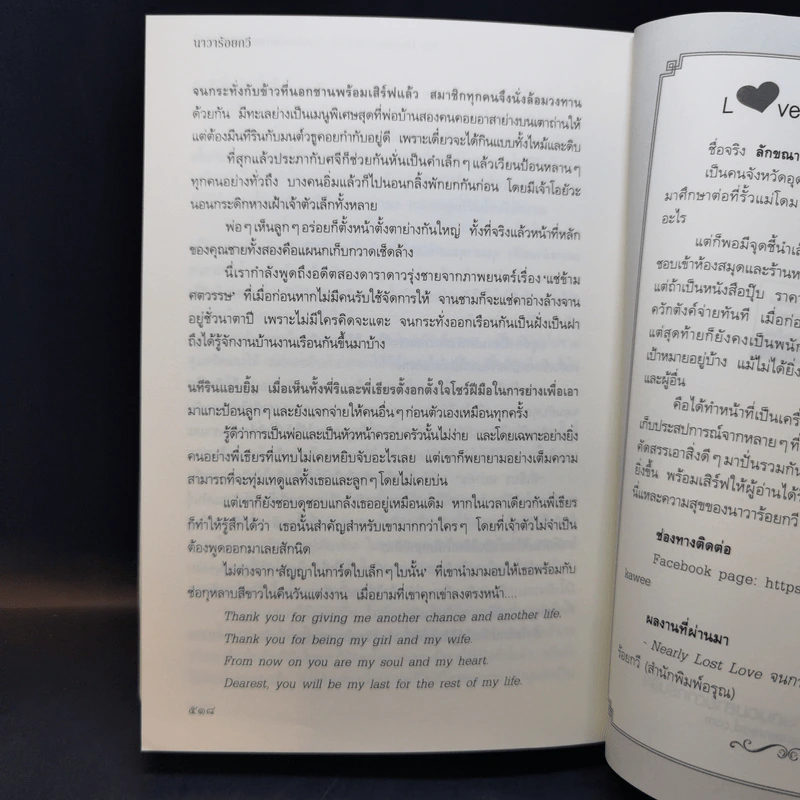 นาวาร้อยกวี
จนกระทั่งกับข้าวที่นอกชานพร้อมเสิร์ฟแล้ว สมาชิกทุกคนจึงนั่งล้อมวงทาน
ด้วยกัน มีทะเลย่างเป็นเมนูพิเศษสุดที่พ่อบ้านสองคนคอยอาสาย่างบนเตาถ่านให้
แต่ต้องมีนทีรินกับมนต์วธูคอยกำกับอยู่ดี เพราะเดี๋ยวจะได้กินแบบทั้งไหม้และดิบ
ที่สุดแล้วประภากับศจีก็ช่วยกันหั่นเป็นคำเล็กๆ แล้วเวียนป้อนหลานๆ
ทุกคนอย่างทั่วถึง บางคนอิ่มแล้วก็ไปนอนกลิ้งพักยกกันก่อน โดยมีเจ้าโอยัวะ
นอนกระดิกหางเฝ้าเจ้าตัวเล็กทั้งหลาย
พ่อๆ เห็นลูกๆ อร่อยก็ตั้งหน้าตั้งตาย่างกันใหญ่ ทั้งที่จริงแล้วหน้าที่หลัก
ของคุณชายทั้งสองคือแผนกเก็บกวาดเช็ดล้าง
นี่เรากำลังพูดถึงอดีตสองดาราดาวรุ่งชายจากภาพยนตร์เรื่อง ‘แซ่ข้าม
ศตวรรษ’ ที่เมื่อก่อนหากไม่มีคนรับใช้จัดการให้ จานชามก็จะแช่คาอ่างล้างจาน
อยู่ชั่วนาตาปี เพราะไม่มีใครคิดจะแตะ จนกระทั่งออกเรือนกันเป็นฝั่งเป็นฝา
ถึงได้รู้จักงานบ้านงานเรือนกันขึ้นมาบ้าง
นทีรินแอบยิ้ม เมื่อเห็นทั้งพี่ริและพี่เธียรตั้งอกตั้งใจโชว์ฝีมือในการย่างเพื่อเอา
มาแกะป้อนลูกๆ และยังแจกจ่ายให้คนอื่นๆ ก่อนตัวเองเหมือนทุกครั้ง
รู้ดีว่าการเป็นพ่อและเป็นหัวหน้าครอบครัวนั้นไม่ง่าย และโดยเฉพาะอย่างยิ่ง
คนอย่างพี่เธียรที่แทบไม่เคยหยิบจับอะไรเลย แต่เขาก็พยายามอย่างเต็มความ
สามารถที่จะทุ่มเทดูแลทั้งเธอและลูกๆ โดยไม่เคยบ่น
แต่เขาก็ยังชอบดุชอบแกล้งเธออยู่เหมือนเดิม หากในเวลาเดียวกันพี่เธียร
ก็ทำให้รู้สึกได้ว่า เธอนั้นสำคัญสำหรับเขามากกว่าใครๆ โดยที่เจ้าตัวไม่จำเป็น
ต้องพูดออกมาเลยสักนิด
ไม่ต่างจาก ‘สัญญาในการ์ดใบเล็กๆ ใบนั้น’ ที่เขานำมามอบให้เธอพร้อมกับ
ช่อกุหลาบสีขาวในคืนวันแต่งงาน เมื่อยามที่เขาคุกเข่าลงตรงหน้า....
Thank you for giving me another chance and another life.
Thank you for being my girl and my wife.
From now on you are my soul and my heart.
Dearest, you will be my last for the rest of my life.
๕๑๘
L ve
ชื่อจริง ลักขณา
เป็นคนจังหวัดอุด
มาศึกษาต่อที่รั้วแม่โดม
อะไร
แต่ก็พอมีจุดชี้นำเส้
ชอบเข้าห้องสมุดและร้านห
แต่ถ้าเป็นหนังสือปุ๊บ ราคา
ควักตังค์จ่ายทันที เมื่อก่อ
แต่สุดท้ายก็ยังคงเป็นพนัก
เป้าหมายอยู่บ้าง แม้ไม่ได้ยิ่ง
และผู้อื่น
คือได้ทำหน้าที่เป็นเครื่
เก็บประสปการณ์จากหลายๆ ที่
คัดสรรเอาสิ่งดีๆ มาปั่นรวมกัน
ยิ่งขึ้น พร้อมเสิร์ฟให้ผู้อ่านได้ร
นี่แหละความสุขของนาวาร้อยกวี
ช่องทางติดต่อ
Facebook page: https
kawee
ผลงานที่ผ่านมา
- Nearly Lost Love จนกว
ร้อยกวี (สำนักพิมพ์อรุณ)